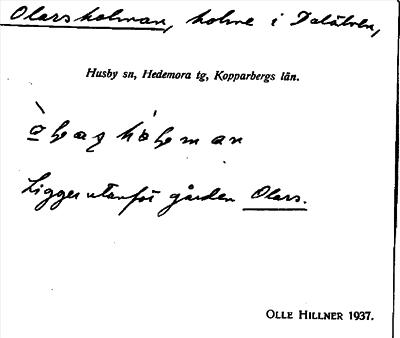 Olarsholman, holme i Dalälven,
Husby sn, Hedemora tg, Kopparbergs län.
Ligger utanför gården Olars.
OLLE HILLNER 1937.